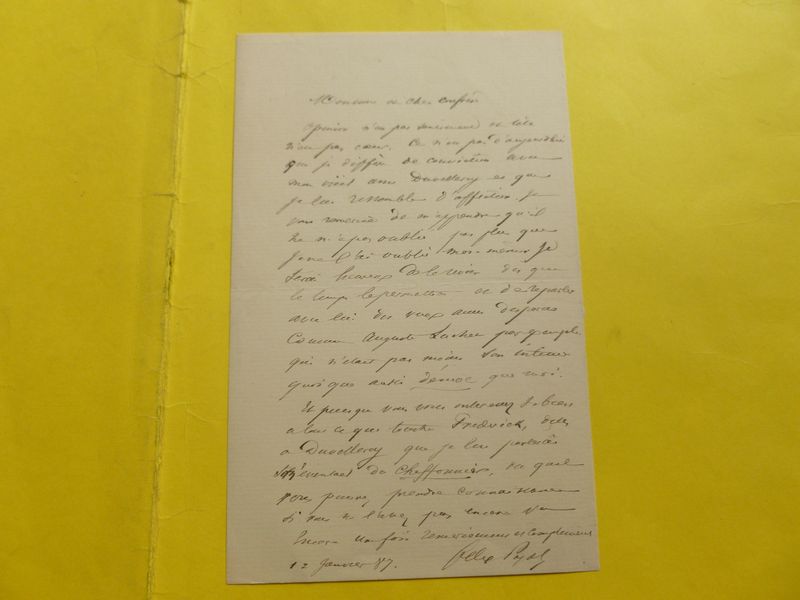 Monsieur et cher confrère
opinion n'en pas seulement et tête
n'en pas cœur. Ce n'en pas d'aujourd'hui
que je diffère de conviction avec
mon vieil ami Duvelleroy et que
je lui ressemble d'affection. Je
vous remercie de m'apprendre qu'il
ne m'a pas oublié pas plus que
je ne l'ai oublié moi-même. Je
serai heureux de le revoir dès que
le temps le permettra et de reparler
avec lui des vieux amis disparus
comme Auguste Luchet par exemple
qui n'était pas moins son intime
quoique aussi démoc que moi.
Et puisque vous vous intéressez si bien
à tout ce que touche Frédérick, dites
à Duvelleroy que je lui porterai
l'éventail du Chiffonnier, et que
vous puissiez prendre connaissance
si vous ne l'avez pas encore vu
Encore une fois remerciements et compliments
12 Janvier 87. Félix Pyat